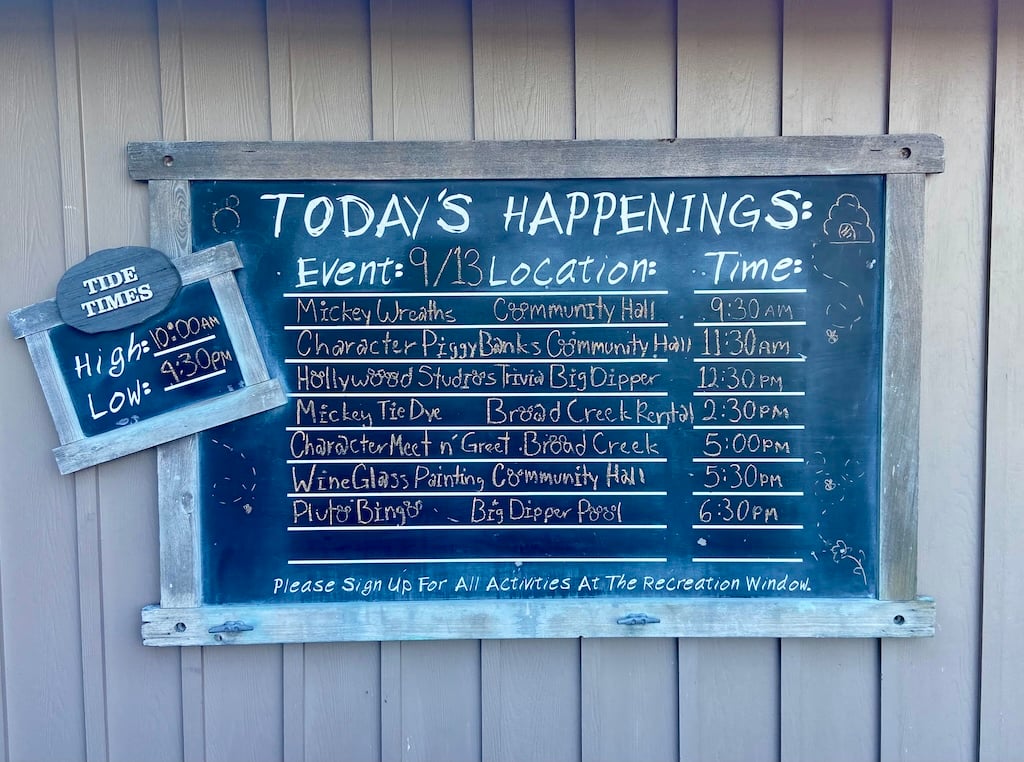 TODAY'S HAPPENINGS:
Event: 9/13 Location: Time:
Mickey Wreaths Community Hall 9:30AM
Character Piggy Banks Community Hall 11:30AM
Hollywood Studios Trivia Big Dipper 12:30PM
Mickey Tie Dye Broad Creek Rental 2:30PM
Character Meet n' Greet Broad Creek 5:00PM
Wine Glass Painting Community Hall 5:30PM
Pluto Bingo Big Dipper Pool 6:30PM
Please Sign Up For All Activities At The Recreation Window.
TIDE
TIMES
High: 10:00AM
Low: 4:30PM